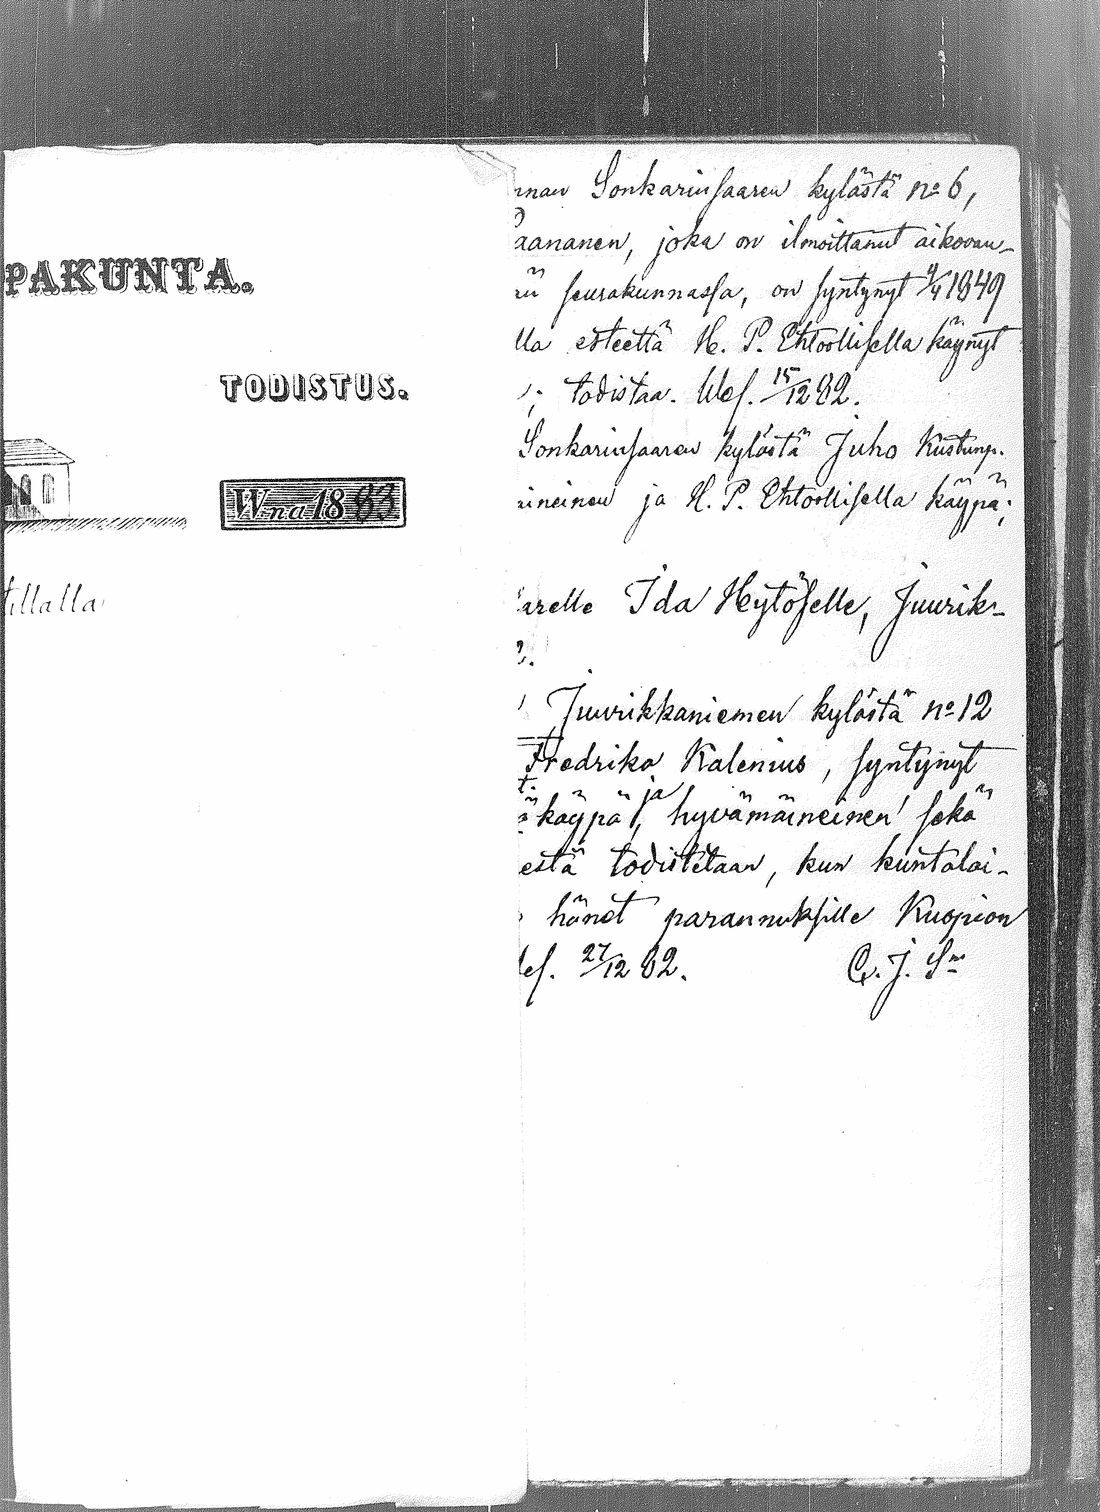 PAKUNTA.
TODISTUS.
Wna 1883
tillalla
nnan Sonkarinsaaren kylästä no 6,
aananen, joka on ilmoittanut aikovan-
seurakunnassa, on syntynyt 4/4 1849
lla esteettä H. P. Ehtoollisella käynyt
; todistaa. Wes. 15/12 82.
Sonkarinsaaren kylästä Juho Kustunp.
aineinen ja H. P. Ehtoollisella käypä;
arelle Ida Hytöselle, Juurik-
2.
Juurikkaniemen kylästä no 12
Fredrika Kalenius, syntynyt
käypä, ja hyvämäineinen sekä
estä todistetaan, kun kuntalai-
hänet parannuksille Kuopion
es. 27/12 82. C. J. Sm